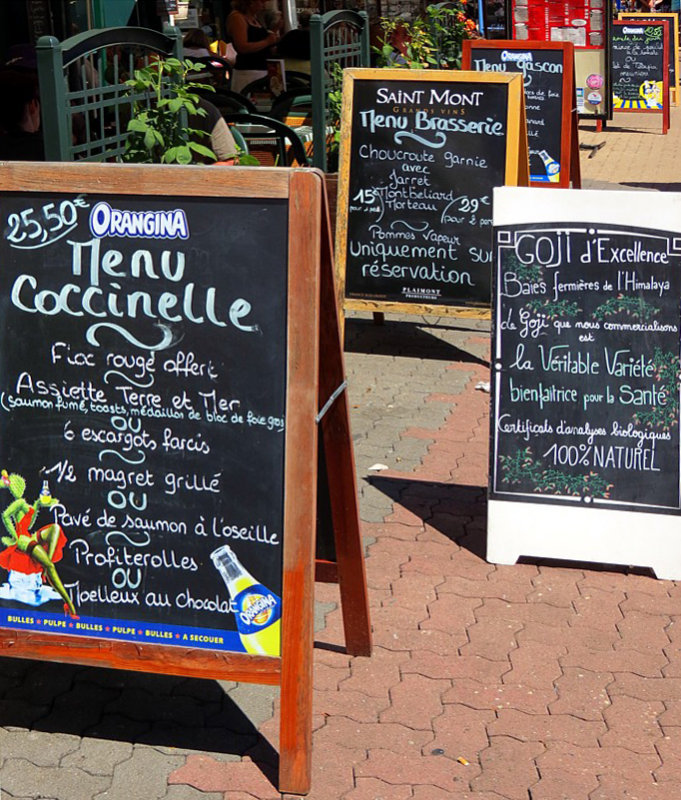 25,50€
ORANGINA
Menu
Coccinelle
Fioc rouge offert
Assiette Terre et Mer
(saumon fumé, toasts, médaillon de bloc de foie gras)
OU
6 escargots farcis
1/2 magret grillé
OU
Pavé de saumon à l'oseille
Profiterolles
OU
Moelleux au Chocolat
ORANGINA
BULLES ★ PULPE ★ BULLES ★ PULPE ★ BULLES ★ A SECOUER
SAINT MONT
GRANDS VINS
Menu Brasserie
Choucroute garnie
avec
Jarret
Montbéliard
Morteau
15€
29€
(pour 2 pers
Pommes Vapeur
Uniquement sur
réservation
PLAIMONT
PRODUCTEURS
ORANGINA
Menu Gascon
GOJI d'Excellence
Baies fermières de l'Himalaya
de Goji que nous commercialisons
est
la Véritable Variété
bienfaitrice pour la Santé
Certificats d'analyses biologiques
100% NATUREL